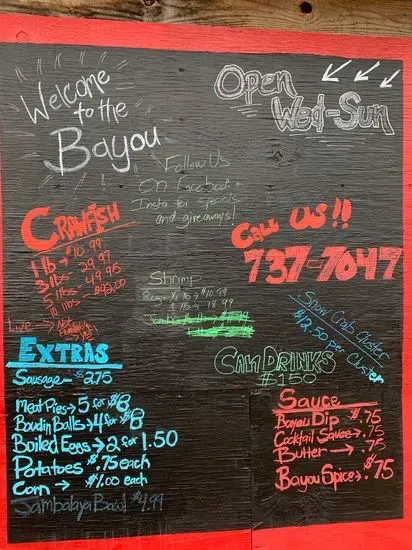 Welcome
to the
Bayou
Open
Wed-Sun
Follow Us
On Facebook +
Insta for specials
and giveaways!
CRAWFISH
1 lb → $10.99
3 lbs → 29.99
5 lbs → 49.95
10 lbs → $92.00
Live → Not
CALL US!!
737-7047
Shrimp
Reg - ½ lb → $10.99
1 lb → 18.99
Snow Crab Cluster
$12.50 per CLUSTER
EXTRAS
Sausage → $2.75
Meat Pies → 5 for $8
Boudin Balls → 4 for $8
Boiled Eggs → 2 for 1.50
Potatoes $.75 each
Corn → $1.00 each
Jambalaya Bowl $4.99
CAN DRINKS
$1.50
Sauce
Bayou Dip $.75
Cocktail Sauce → .75
Butter → .75
Bayou Spice → $.75